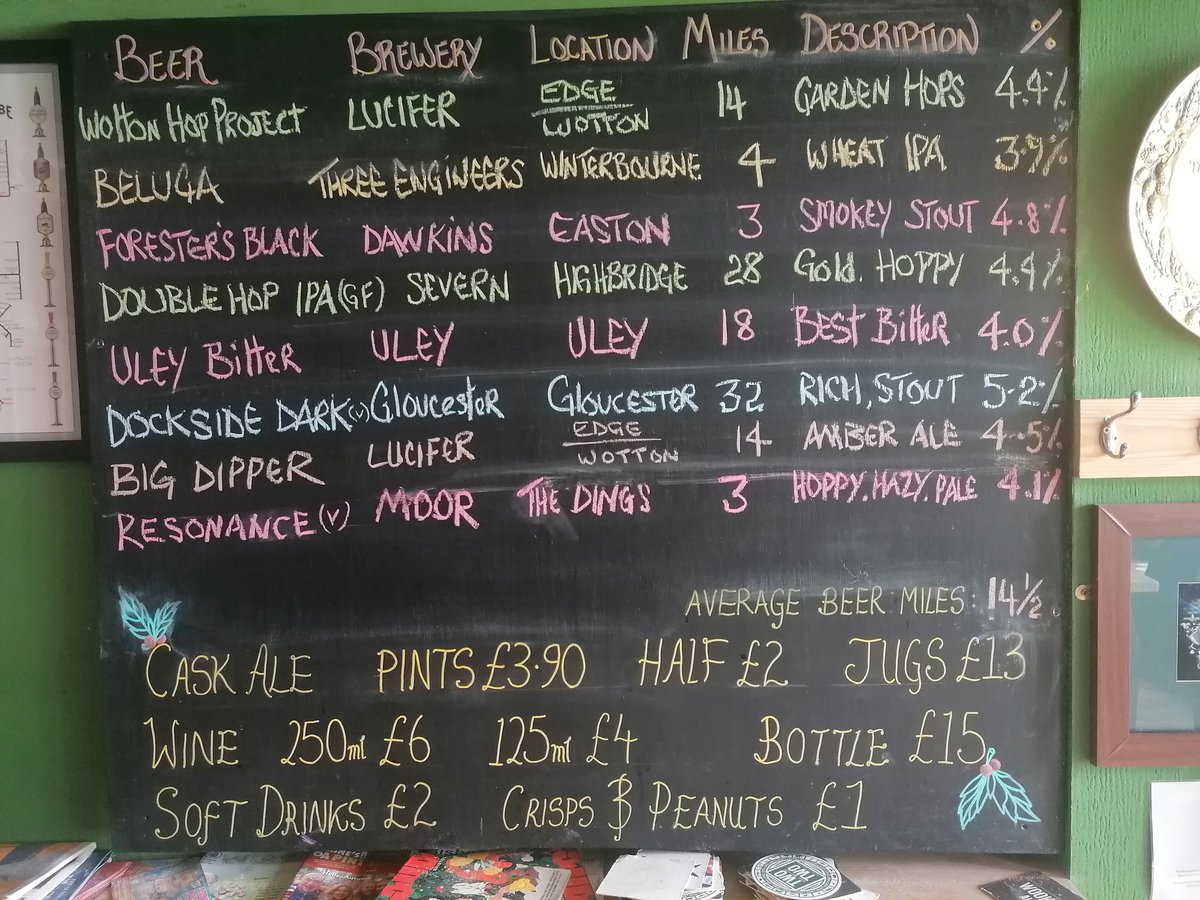 BEER BREWERY LOCATION MILES DESCRIPTION %
WOTTON HOP PROJECT LUCIFER EDGE WOTTON 14 GARDEN HOPS 4.4%
BELUGA THREE ENGINEERS WINTERBOURNE 4 WHEAT IPA 3.9%
FORESTER'S BLACK DAWKINS EASTON 3 SMOKEY STOUT 4.8%
DOUBLE HOP IPA (GF) SEVERN HIGHBRIDGE 28 GOLD. HOPPY 4.4%
ULEY BITTER ULEY ULEY 18 BEST BITTER 4.0%
DOCKSIDE DARK (V) GLOUCESTER GLOUCESTER 32 RICH, STOUT 5.2%
BIG DIPPER LUCIFER EDGE WOTTON 14 AMBER ALE 4.5%
RESONANCE (V) MOOR THE DINGS 3 HOPPY, HAZY, PALE 4.1%
AVERAGE BEER MILES 14 1/2
CASK ALE PINTS £3.90 HALF £2 JUGS £13
WINE 250ml £6 125ml £4 BOTTLE £15
SOFT DRINKS £2 CRISPS & PEANUTS £1
TWO